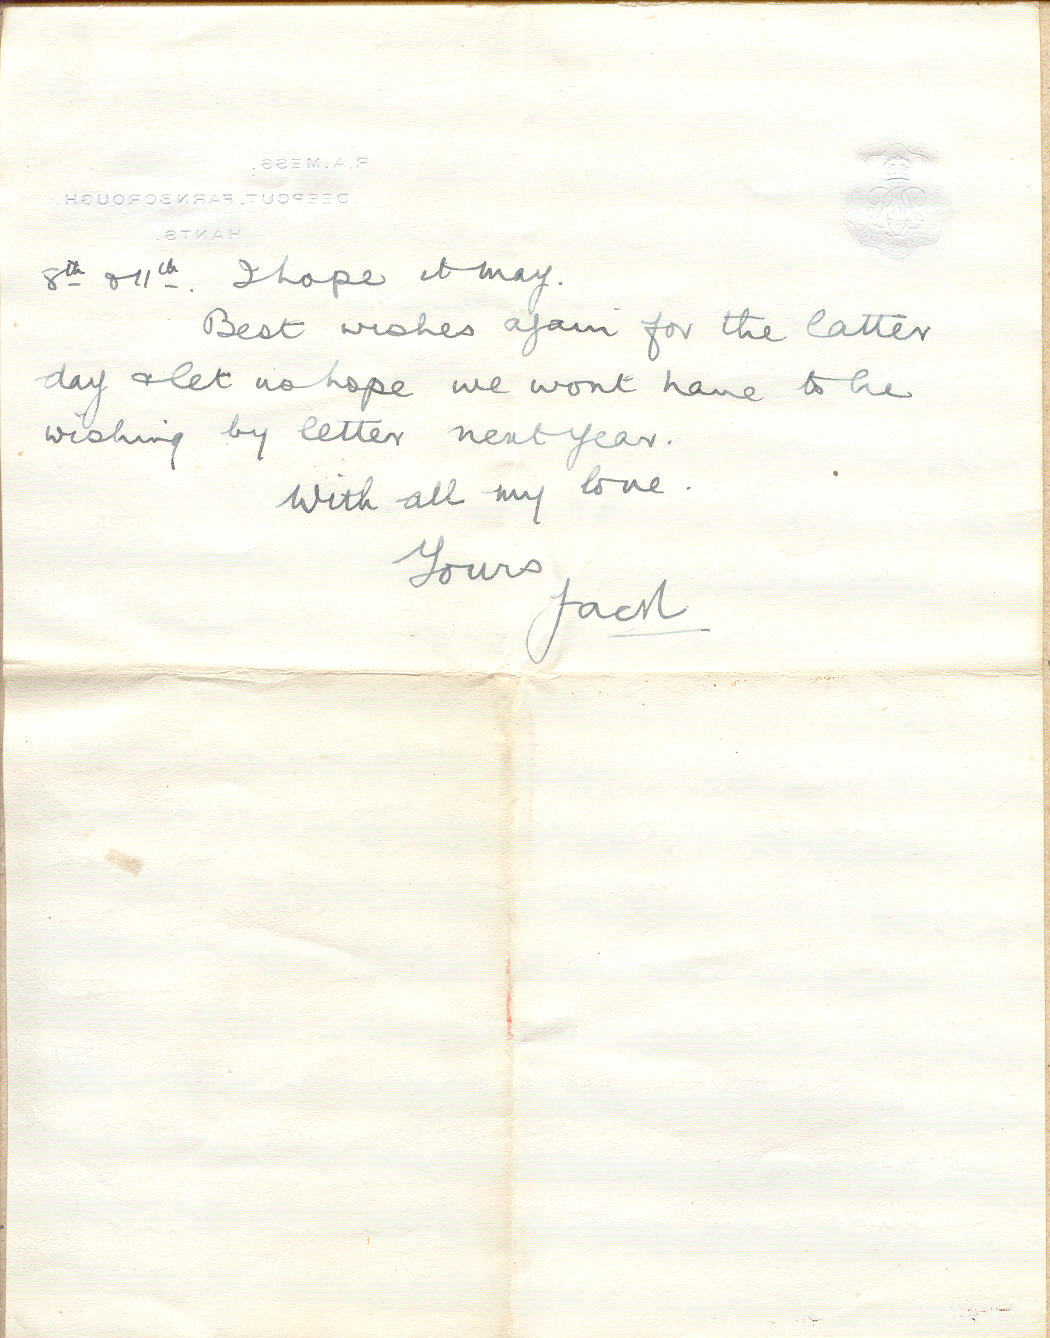 R.A.MESS.
DEEPCUT, FARNBOROUGH.
HANTS.
8th & 11th. I hope it may.
Best wishes again for the latter
day & let us hope we wont have to be
wishing by letter next year.
With all my love.
Yours
Jack